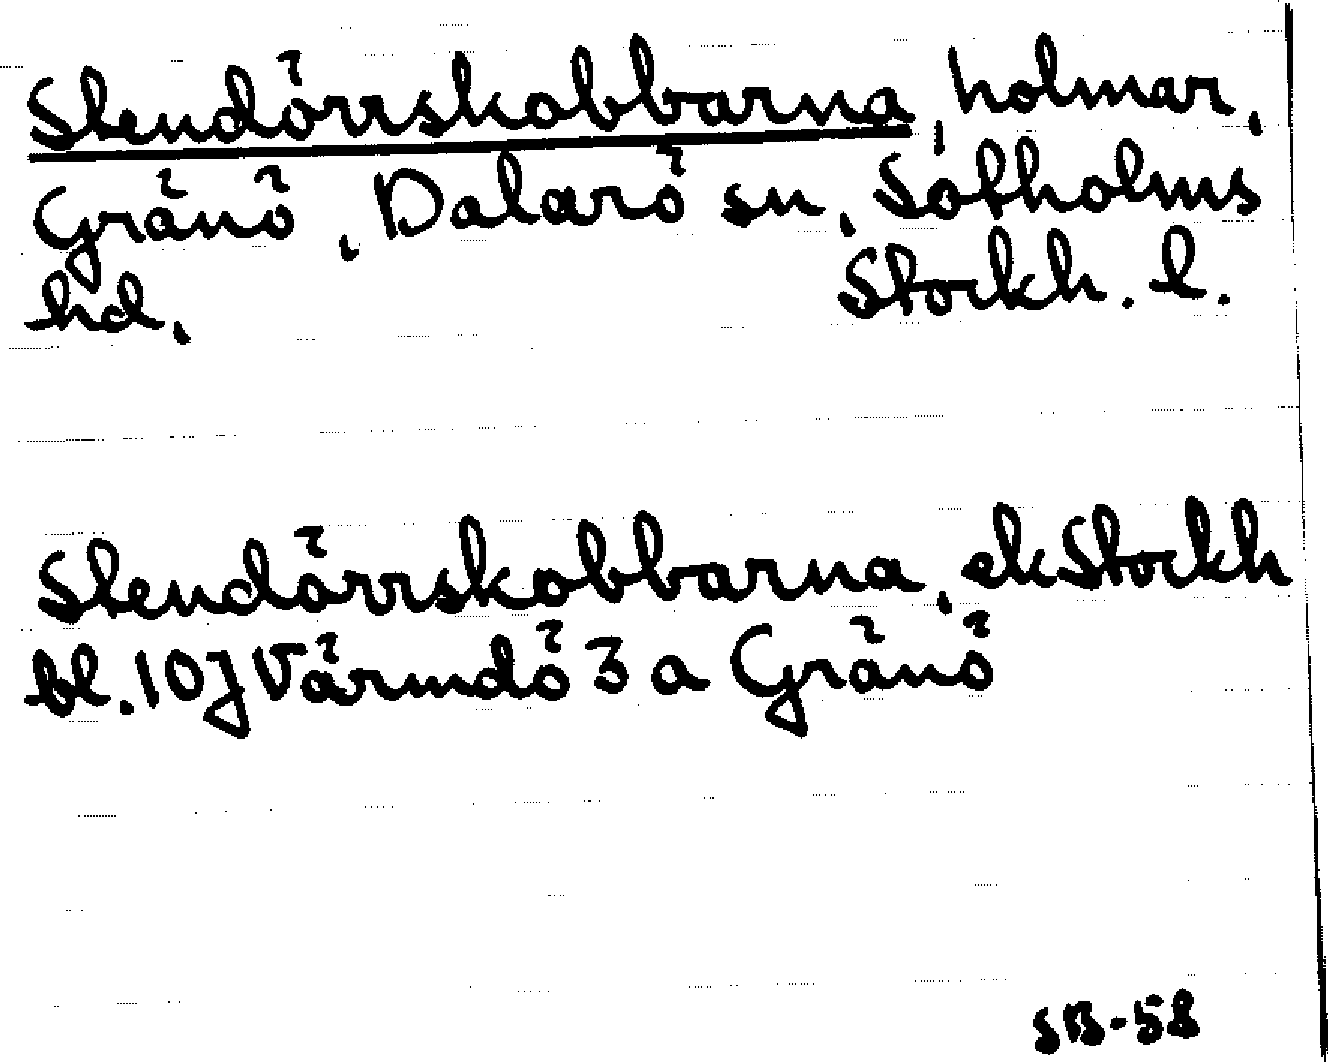 Stendörrskobbarna, holmar,
Gränö, Dalarö sn, Sotholms
hd. Stockh. l.
Stendörrskobbarna, ek Stockh
bl. 10J Värmdö 3 a Gränö
SB-58